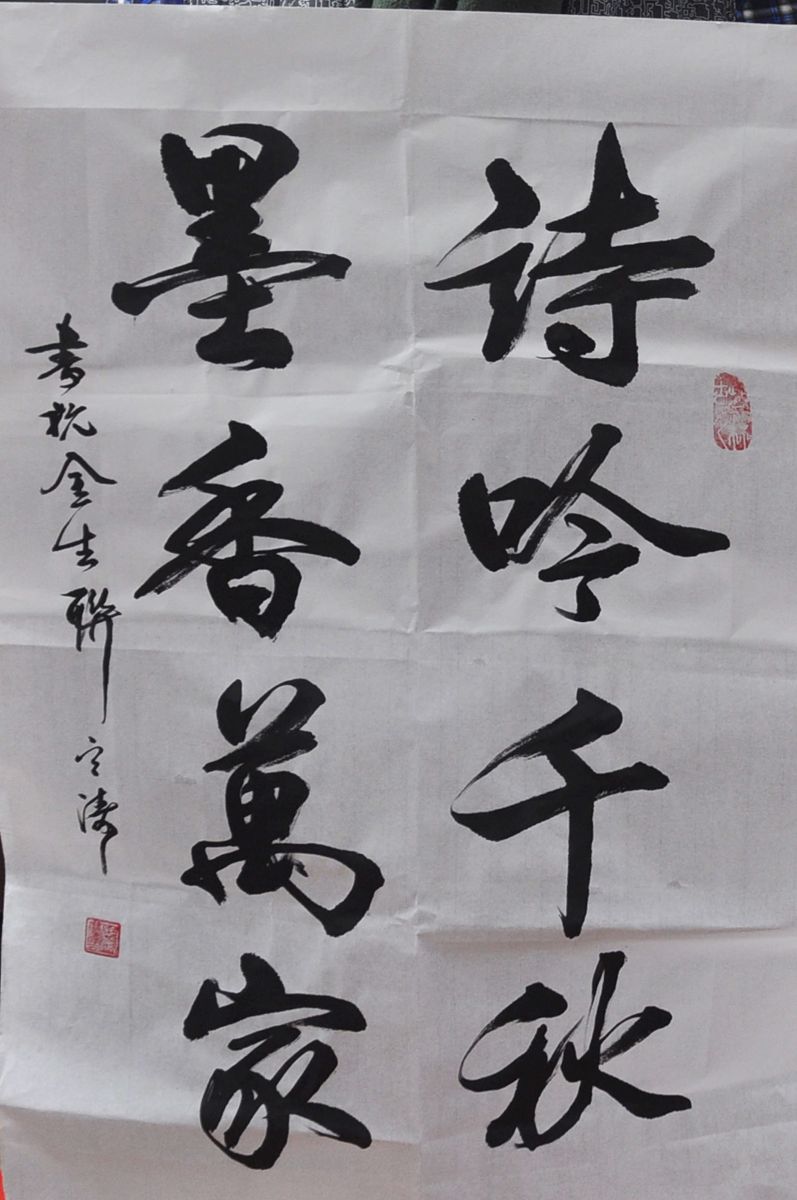 詩吟千秋
墨香萬家
書杭金生聯 定濤